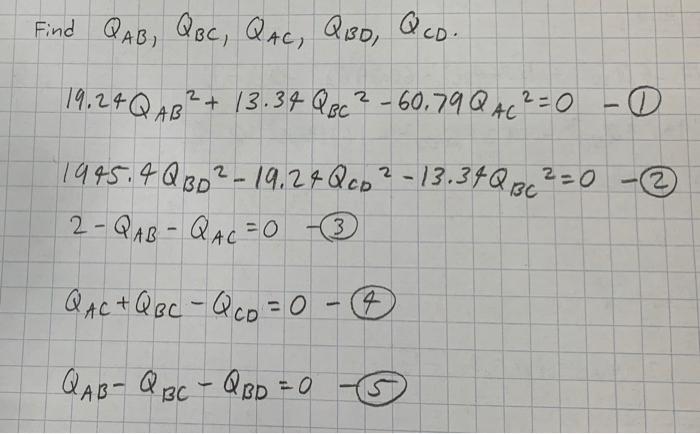 Find Q_AB, Q_BC, Q_AC, Q_BD, Q_CD.
19.24Q_AB² + 13.34Q_BC² - 60.79Q_AC² = 0 - ①
1945.4Q_BD² - 19.24Q_CD² - 13.34Q_BC² = 0 - ②
2 - Q_AB - Q_AC = 0 - ③
Q_AC + Q_BC - Q_CD = 0 - ④
Q_AB - Q_BC - Q_BD = 0 - ⑤